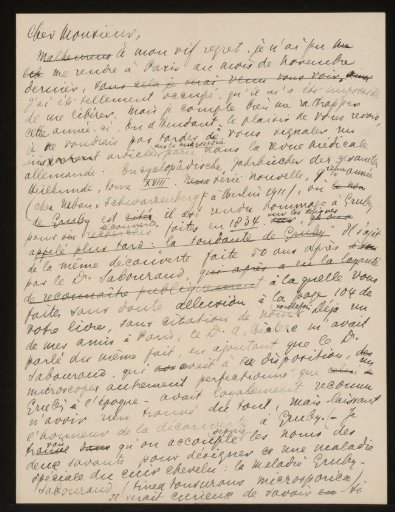 Cher Monsieur,
Malheureus à mon vif regret, je n'ai pu
me rendre à Paris au mois de novembre
dernier, sans cela je serai venu vous voir,
j'ai été tellement occupé, qu'il m'a été impossible
de me libérer. Mais je compte bien me rattraper
cette année-ci. En attendant le plaisir de vous revoir,
je ne voudrais pas tarder à vous signaler un
article paru dans la revue médicale
allemande: Encyclopädische Jahrbücher der gesamten
Heilkunde, tome XVIII série nouvelle, année
(chez Urban & Schwarzenberg à Berlin 1911), où
de Gruby est il est rendu hommage à Gruby
pour ses découvertes faites en 1834
appelé plus tard: la tondante de Gruby
de la même découverte faite 50 ans après
par le Dr Sabouraud, qui après a eu la loyauté
de reconnaître publiquement à laquelle vous
faites sans doute allusion à la page 104 de
votre livre, sans citation de noms. Déjà un
de mes amis à Paris, le Dr A. m'avait
parlé du même fait, en ajoutant que le Dr
Sabouraud, qui avait à sa disposition, des
microscopes autrement perfectionné que
Gruby à l'époque - avait loyalement reconnu
n'avoir rien trouvé du tout, mais laissant
l'honneur de la découverte à Gruby. - Je
qu'on accouple les noms des
deux savants pour désigner une maladie
spéciale du cuir chevelu: la maladie Gruby-
Sabouraud (tinea tonsurans microsporica)
Je serait curieux de savoir si